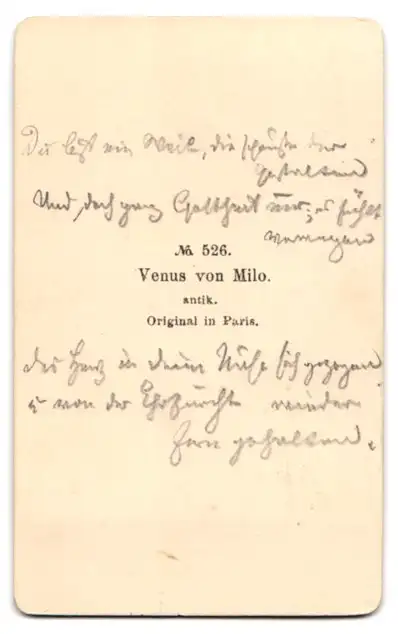 Du bist ein Weib, die schönste der
Gestalten
Und doch ganz Gottheit nur; es fühlt
verwegen
№ 526.
Venus von Milo.
antik.
Original in Paris.
das Herz in deine Nähe sich gezogen
u von der Ehrfurcht wieder
fern gehalten.